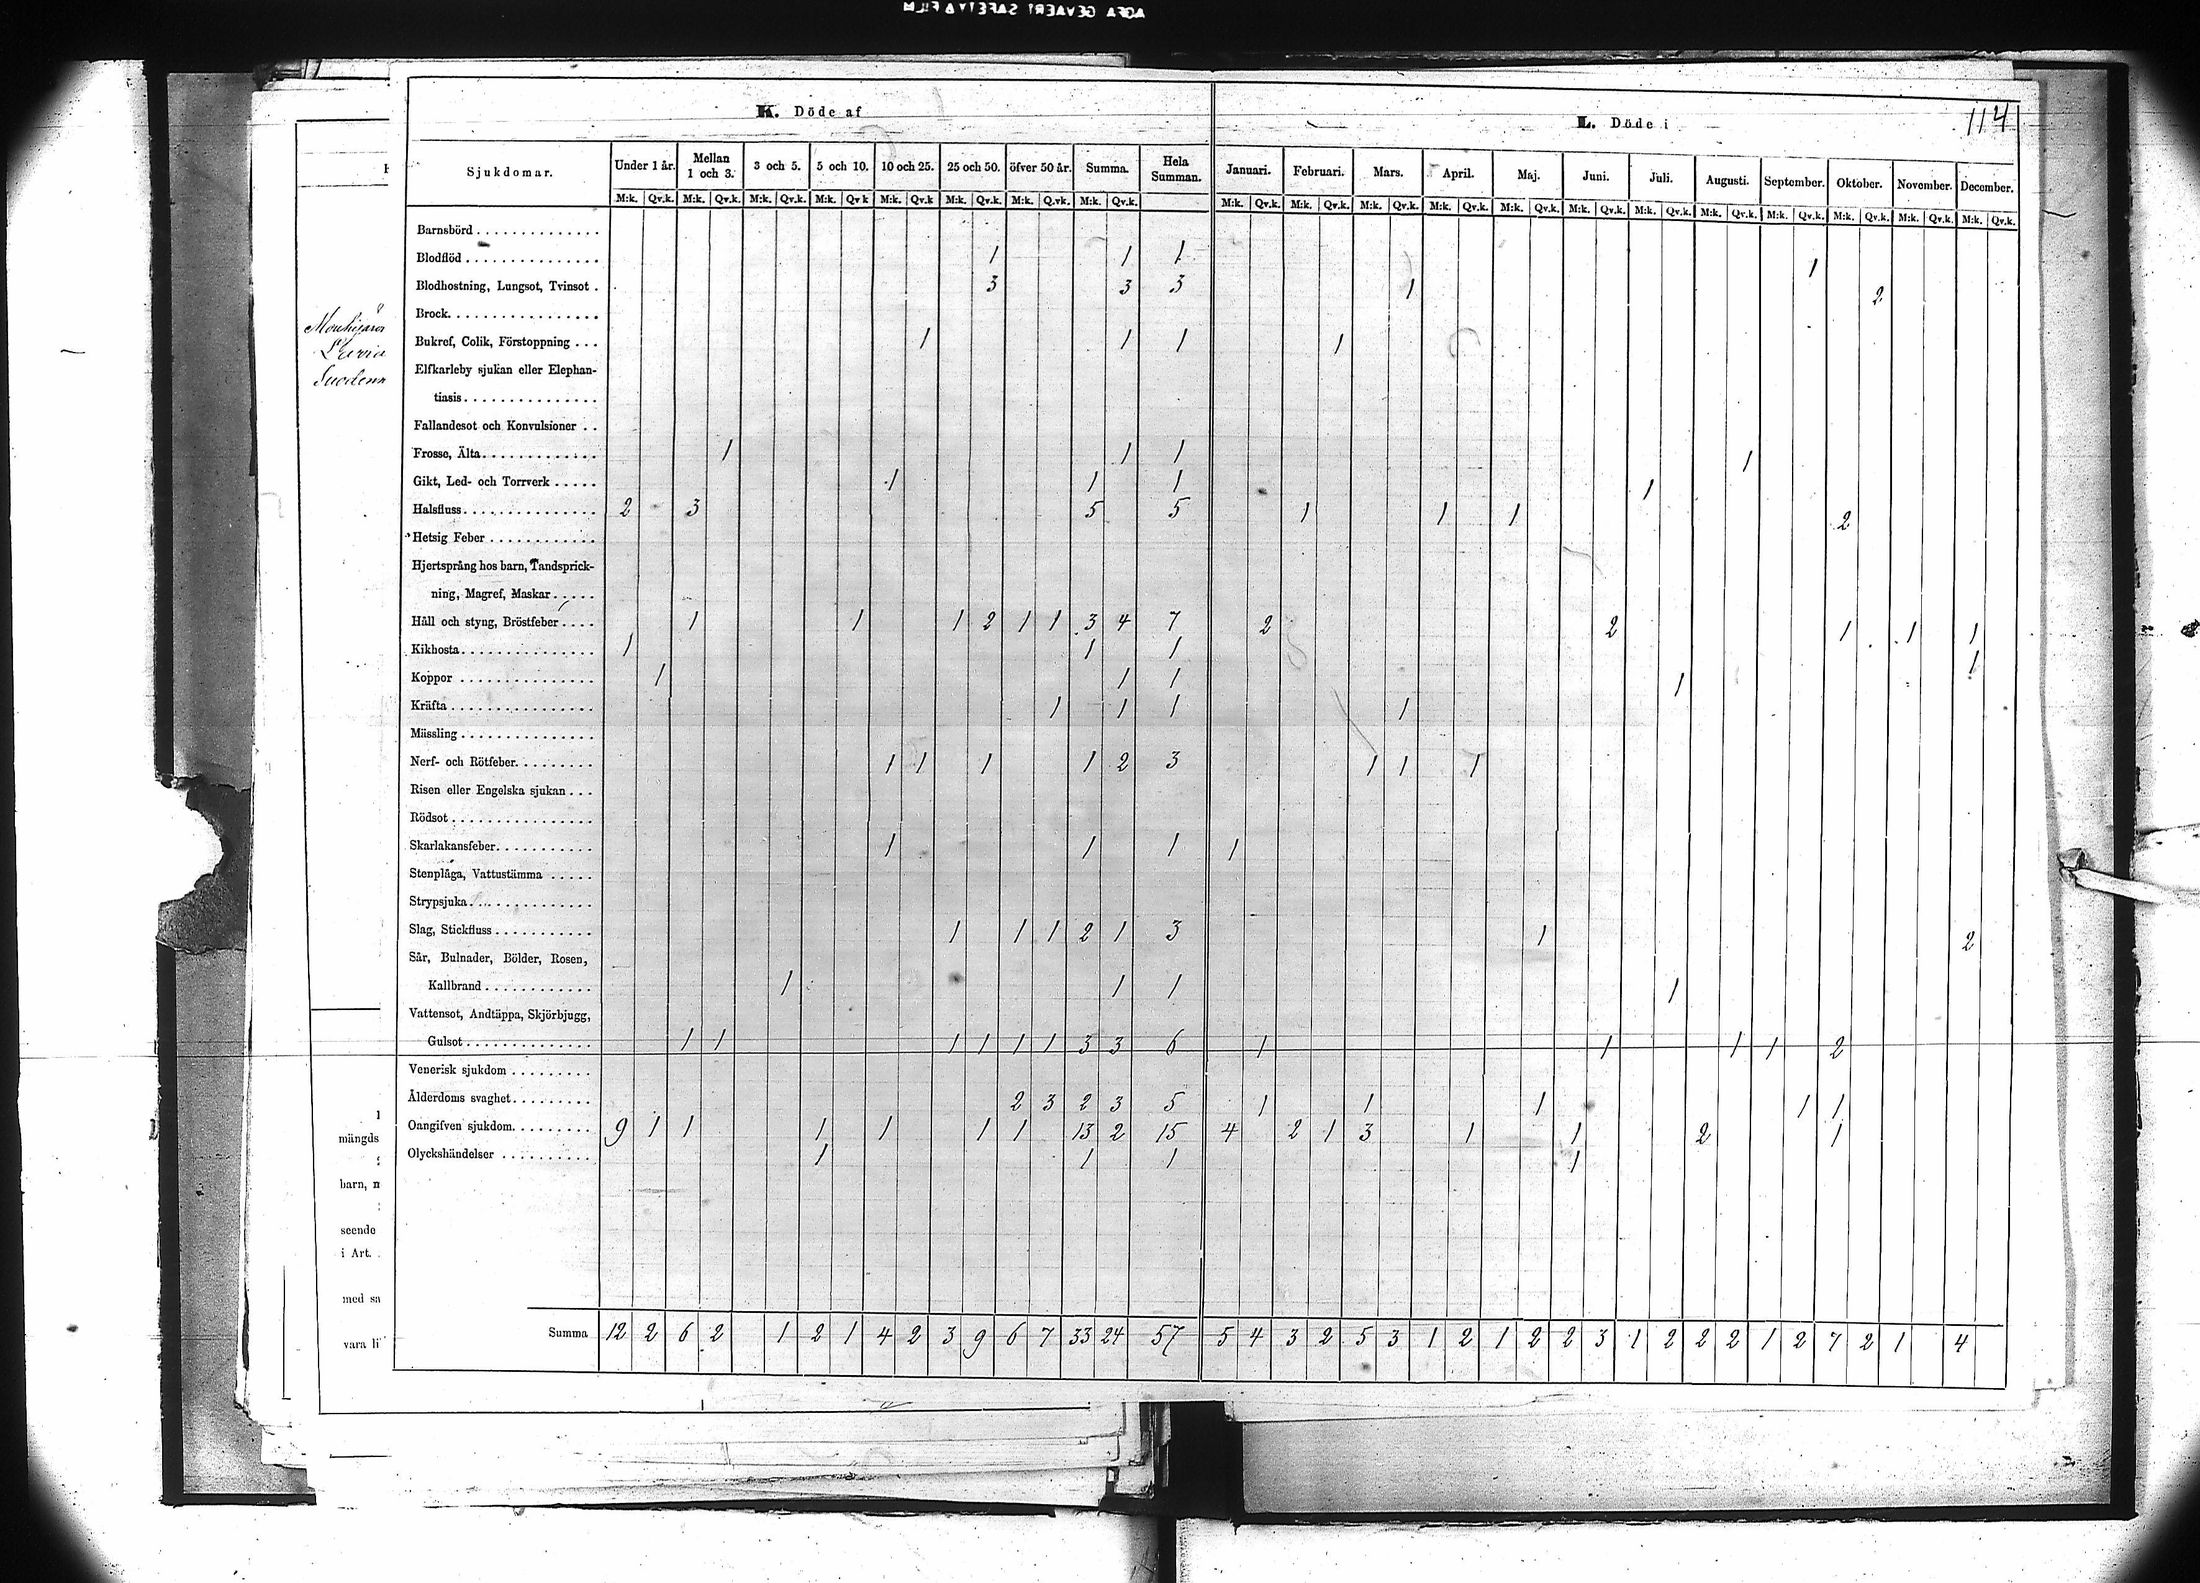 AGFA GEVAERT SAFETY FILM
K. Döde af
L. Döde i
114
Sjukdomar. Under 1 år. Mellan 1 och 3. 3 och 5. 5 och 10. 10 och 25. 25 och 50. öfver 50 år. Summa. Hela Summan. Januari. Februari. Mars. April. Maj. Juni. Juli. Augusti. September. Oktober. November. December.
M:k. Qv.k. M:k. Qv.k. M:k. Qv.k. M:k. Qv k M:k. Qv.k M:k. Qv.k. M:k. Q.vk. M:k. Qv.k. M:k. Qv.k. M:k. Qv.k. M:k. Qv.k. M:k. Qv.k. M:k. Qv.k. M:k. Qv.k. M:k. Qv.k. M:k. Qv.k. M:k. Qv.k. M:k. Qv.k. M:k. Qv.k. M:k. Qv.k.
Barnsbörd
Blodflöd 1 1 1 1
Blodhostning, Lungsot, Tvinsot 3 3 3 1 2
Brock
Bukref, Colik, Förstoppning 1 1 1 1
Elfkarleby sjukan eller Elephan-
tiasis
Fallandesot och Konvulsioner
Frosse, Älta 1 1 1 1
Gikt, Led- och Torrverk 1 1 1 1
Halsfluss 2 3 5 5 1 1 1 2
Hetsig Feber
Hjertsprång hos barn, Tandsprick-
ning, Magref, Maskar
Håll och styng, Bröstfeber 1 1 1 2 1 1 3 4 7 2 2 1 1 1
Kikhosta 1 1 1 1
Koppor 1 1 1 1
Kräfta 1 1 1 1
Mässling
Nerf- och Rötfeber 1 1 1 1 2 3 1 1 1
Risen eller Engelska sjukan
Rödsot
Skarlakansfeber 1 1 1 1
Stenplåga, Vattustämma
Strypsjuka
Slag, Stickfluss 1 1 1 2 1 3 1 2
Sår, Bulnader, Bölder, Rosen,
Kallbrand 1 1 1 1
Vattensot, Andtäppa, Skjörbjugg,
Gulsot 1 1 1 1 1 1 3 3 6 1 1 1 1 2
Venerisk sjukdom
Ålderdoms svaghet 2 3 2 3 5 1 1 1 1 1
Oangifven sjukdom 9 1 1 1 1 1 1 13 2 15 4 2 1 3 1 1 2 1
Olyckshändelser 1 1 1 1
Summa 12 2 6 2 1 2 1 4 2 3 9 6 7 33 24 57 5 4 3 2 5 3 1 2 1 2 2 3 1 2 2 2 1 2 7 2 1 4
mängds
barn, n
seende
i Art.
med sa
vara li